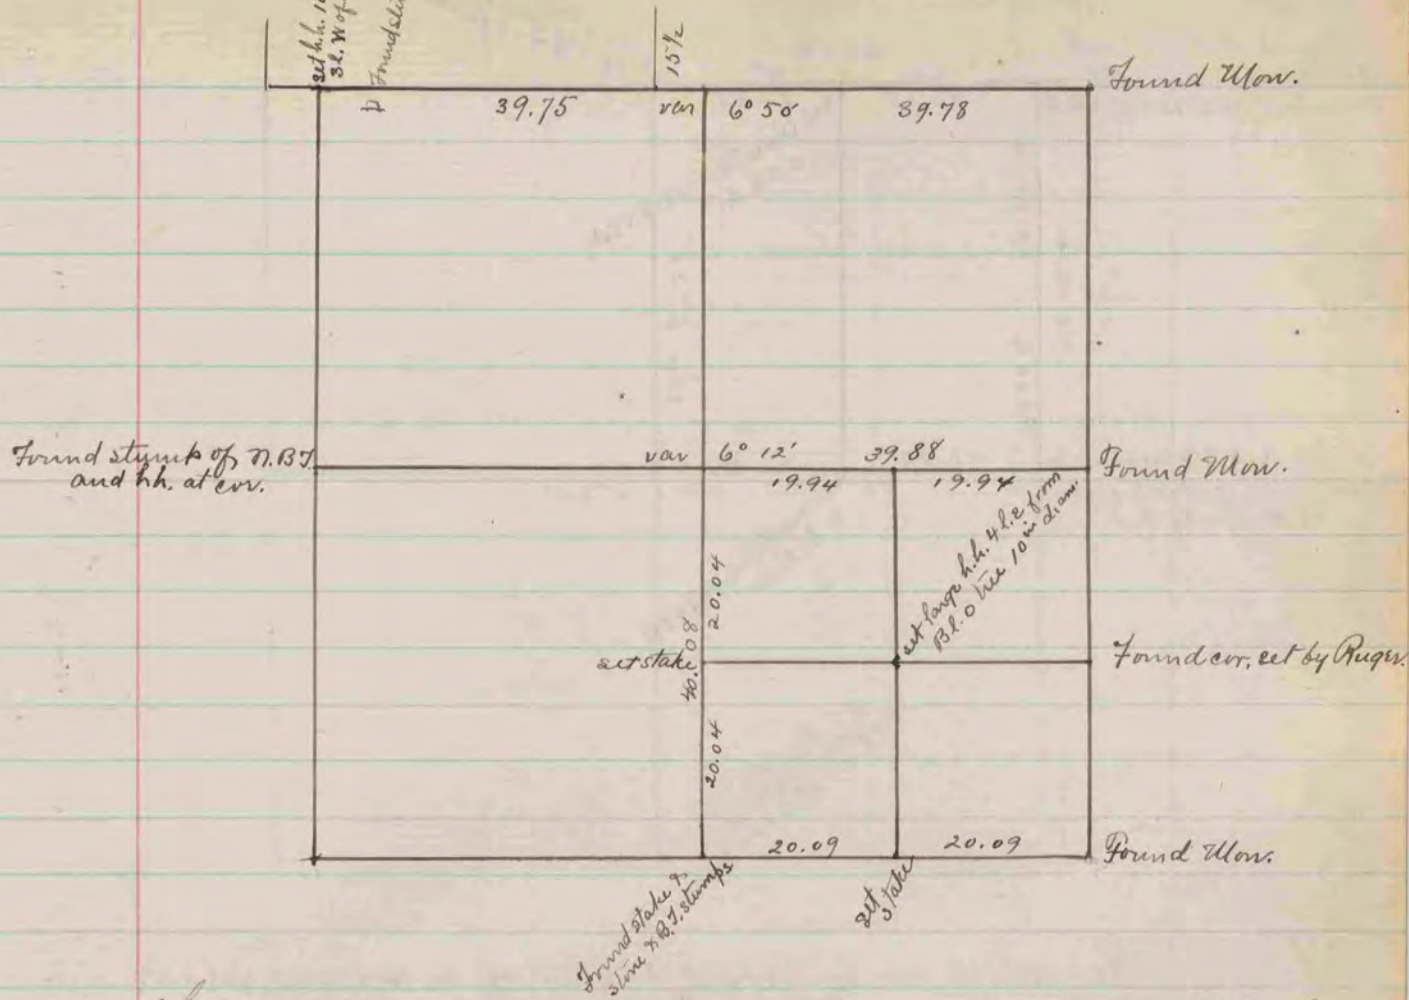 set h.h.
3 l. W of
Found
15 1/2
Found Mon.
39.75 var 6° 50' 39.78
Found stump of N.B.T.
and hh. at cor.
var 6° 12' 39.88
Found Mon.
19.94 19.94
set large h.h. 4 l. E from
Bl. O tree 10 in diam.
20.04
40.08
set stake
Found cor. set by Ruger.
20.04
20.09 20.09
Found Mon.
Found stake &
stone & B.T. stumps
set
stake